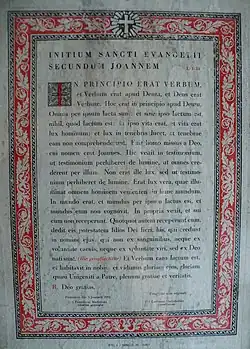 INITIUM SANCTI EVANGELII
SECUNDUM JOANNEM
IN PRINCIPIO ERAT VERBUM,
et Verbum erat apud Deum, et Deus erat
Verbum. Hoc erat in principio apud Deum.
Omnia per ipsum facta sunt: et sine ipso factum est
nihil, quod factum est: in ipso vita erat, et vita erat
lux hominum: et lux in tenebris lucet, et tenebrae
eam non comprehenderunt. Fuit homo missus a Deo,
cui nomen erat Joannes. Hic venit in testimonium,
ut testimonium perhiberet de lumine, ut omnes crederent
per illum. Non erat ille lux, sed ut testimonium
perhiberet de lumine. Erat lux vera, quae illuminat
omnem hominem venientem in hunc mundum.
In mundo erat, et mundus per ipsum factus est, et
mundus eum non cognovit. In propria venit, et sui
eum non receperunt. Quotquot autem receperunt eum,
dedit eis potestatem filios Dei fieri, his, qui credunt
in nomine ejus: qui non ex sanguinibus, neque ex
voluntate carnis, neque ex voluntate viri, sed ex Deo
nati sunt. Et Verbum caro factum est,
et habitavit in nobis: et vidimus gloriam ejus, gloriam
quasi Unigeniti a Patre, plenum gratiae et veritatis.
R. Deo gratias.